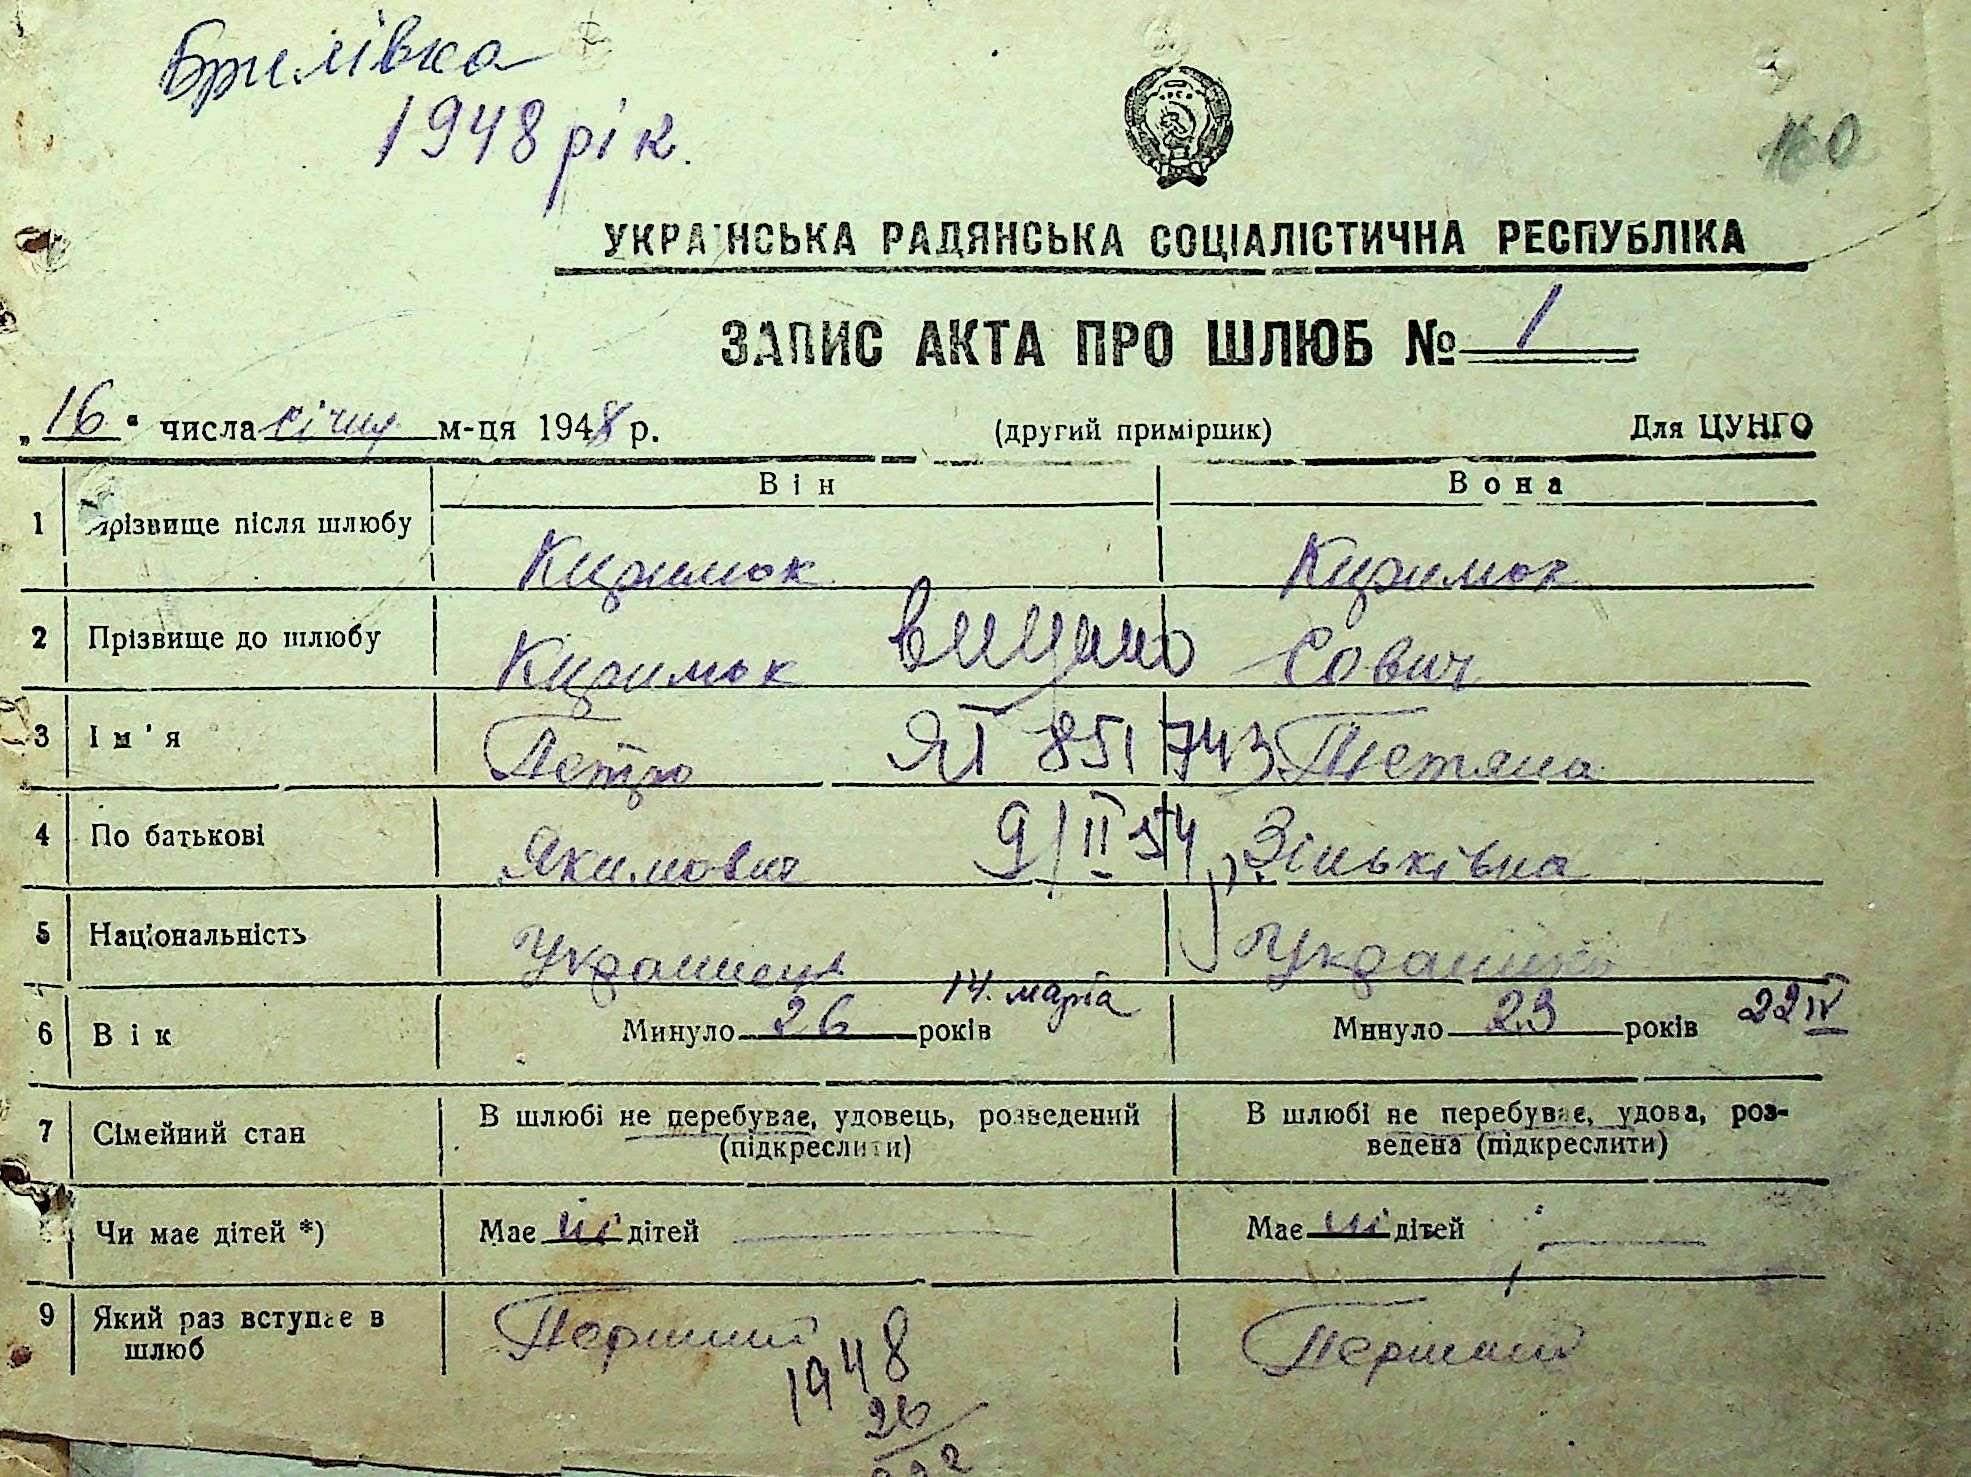 Брилівка
1948 рік.
160
УКРАЇНСЬКА РАДЯНСЬКА СОЦІАЛІСТИЧНА РЕСПУБЛІКА
ЗАПИС АКТА ПРО ШЛЮБ № 1
„16“ числа січня м-ця 1948 р. (другий примірник) Для ЦУНГО
Він Вона
1 Прізвище після шлюбу Киримок Киримок
2 Прізвище до шлюбу Киримок видано Сович
3 Ім'я Петро ЯТ 851743 Тетяна
4 По батькові Якимович 9/II 54 Зіньківна
5 Національність Украинець Украинка
6 Вік Минуло 26 років 14. марта Минуло 23 років 22 IV
7 Сімейний стан В шлюбі не перебуває, удовець, розведений (підкреслити) В шлюбі не перебуває, удова, роз-
ведена (підкреслити)
8 Чи має дітей *) Має ні дітей Має ні дітей
9 Який раз вступає в шлюб Перший Перший
1948
26